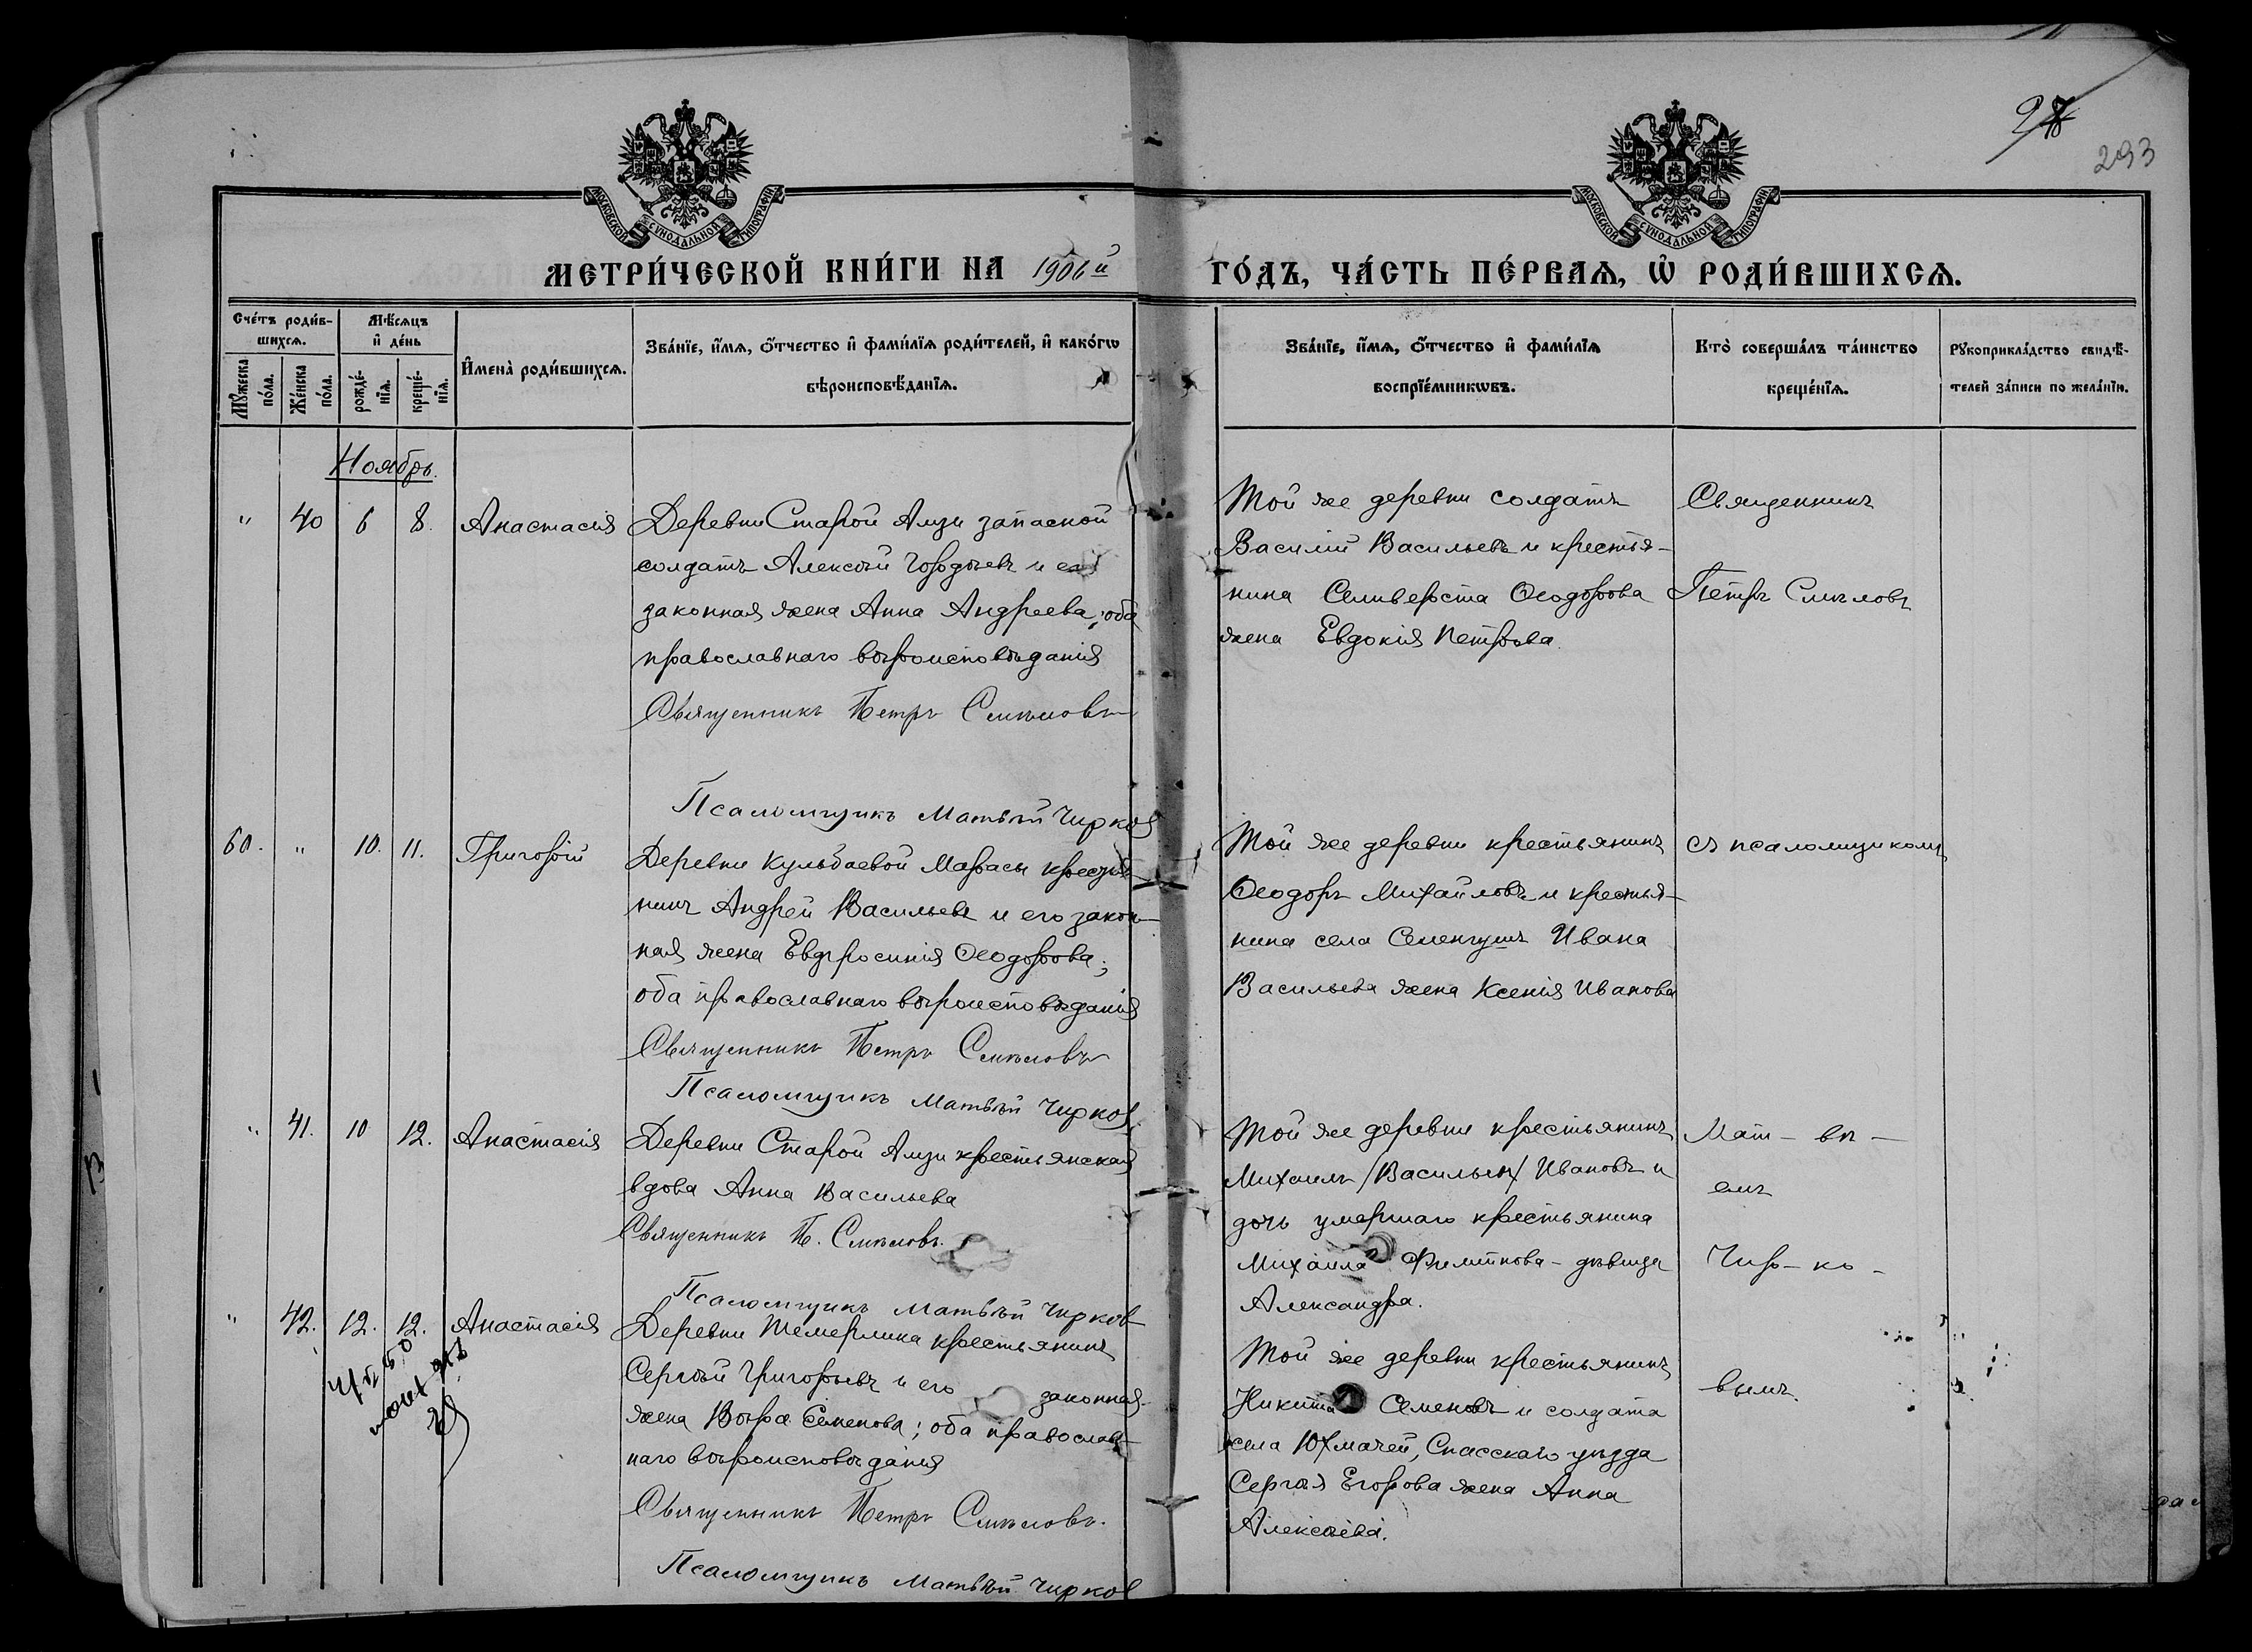 97
293
МОСКОВСКОЙ СѴНОДАЛЬНОЙ ТИПОГРАФІИ
МОСКОВСКОЙ СѴНОДАЛЬНОЙ ТИПОГРАФІИ
МЕТРИ́ЧЕСКОЙ КНИ́ГИ НА 1906й ГО́ДЪ, ЧА́СТЬ ПЕ́РВАѦ, Ѡ҆ РОДИ́ВШИХСѦ.
Сче́тъ роди́в-
шихсѧ.
Мꙋжеска по́ла.
Же́нска по́ла.
Мѣ́сѧцъ
и҆ де́нь
рожде́-
нїѧ.
креще́-
нїѧ.
И҆мена̀ роди́вшихсѧ.
Зва́нїе, и҆́мѧ, ѻ҆́тчество и҆ фами́лїѧ роди́телей, и҆ како́гѡ
вѣроисповѣ́данїѧ.
Зва́нїе, и҆́мѧ, ѻ҆́тчество и҆ фами́лїѧ
воспрїе́мникѡвъ.
Кто̀ соверша́лъ та́инство
креще́нїѧ.
Рꙋкоприкла́дство свидѣ́-
телей за́писи по жела́нїю.
Ноябрь.
" 40 6 8. Анастасія
Деревни Старой Алзи запасной
солдатъ Алексѣй Гордѣевъ и его
законная жена Анна Андреева; оба
православнаго вѣроисповѣданія
Священникъ Петръ Смѣловъ
Псаломщикъ Матвѣй Чирков
Той же деревни солдатъ
Василій Васильевъ и крестья-
нина Селиверста Ѳеодорова
жена Евдокія Петрова.
Священникъ
Петръ Смѣловъ
60. " 10. 11. Григорій
Деревни Кульбаевой Марасы крестья-
нинъ Андрей Васильевъ и его закон-
ная жена Евфросинія Ѳеодорова;
оба православнаго вѣроисповѣданія
Священникъ Петръ Смѣловъ
Псаломщикъ Матвѣй Чирков
Той же деревни крестьянинъ
Ѳеодоръ Михайловъ и крестья-
нина села Семенчушъ Ивана
Васильева жена Ксенія Иванова
съ псаломщикомъ
" 41. 10 12. Анастасія
Деревни Старой Алзи крестьянская
вдова Анна Васильева
Священникъ П. Смѣловъ.
Псаломщикъ Матвѣй Чирков
Той же деревни крестьянинъ
Михаилъ /Васильевъ/ Ивановъ и
дочь умершаго крестьянина
Михаила Филиппова - дѣвица
Александра.
Мат - вѣ -
емъ
Чир - ко -
" 42. 12. 12. Анастасія
Деревни Шемерлика крестьянинъ
Сергѣй Григорьевъ и его законная
жена Вѣра Семенова; оба православ-
наго вѣроисповѣданія
Священникъ Петръ Смѣловъ.
Псаломщикъ Матвѣй Чирков
Той же деревни крестьянинъ
Никита Семеновъ и солдата
села Юхмачей, Спасскаго уѣзда
Сергѣя Егорова жена Анна
Алексѣева.
вымъ.